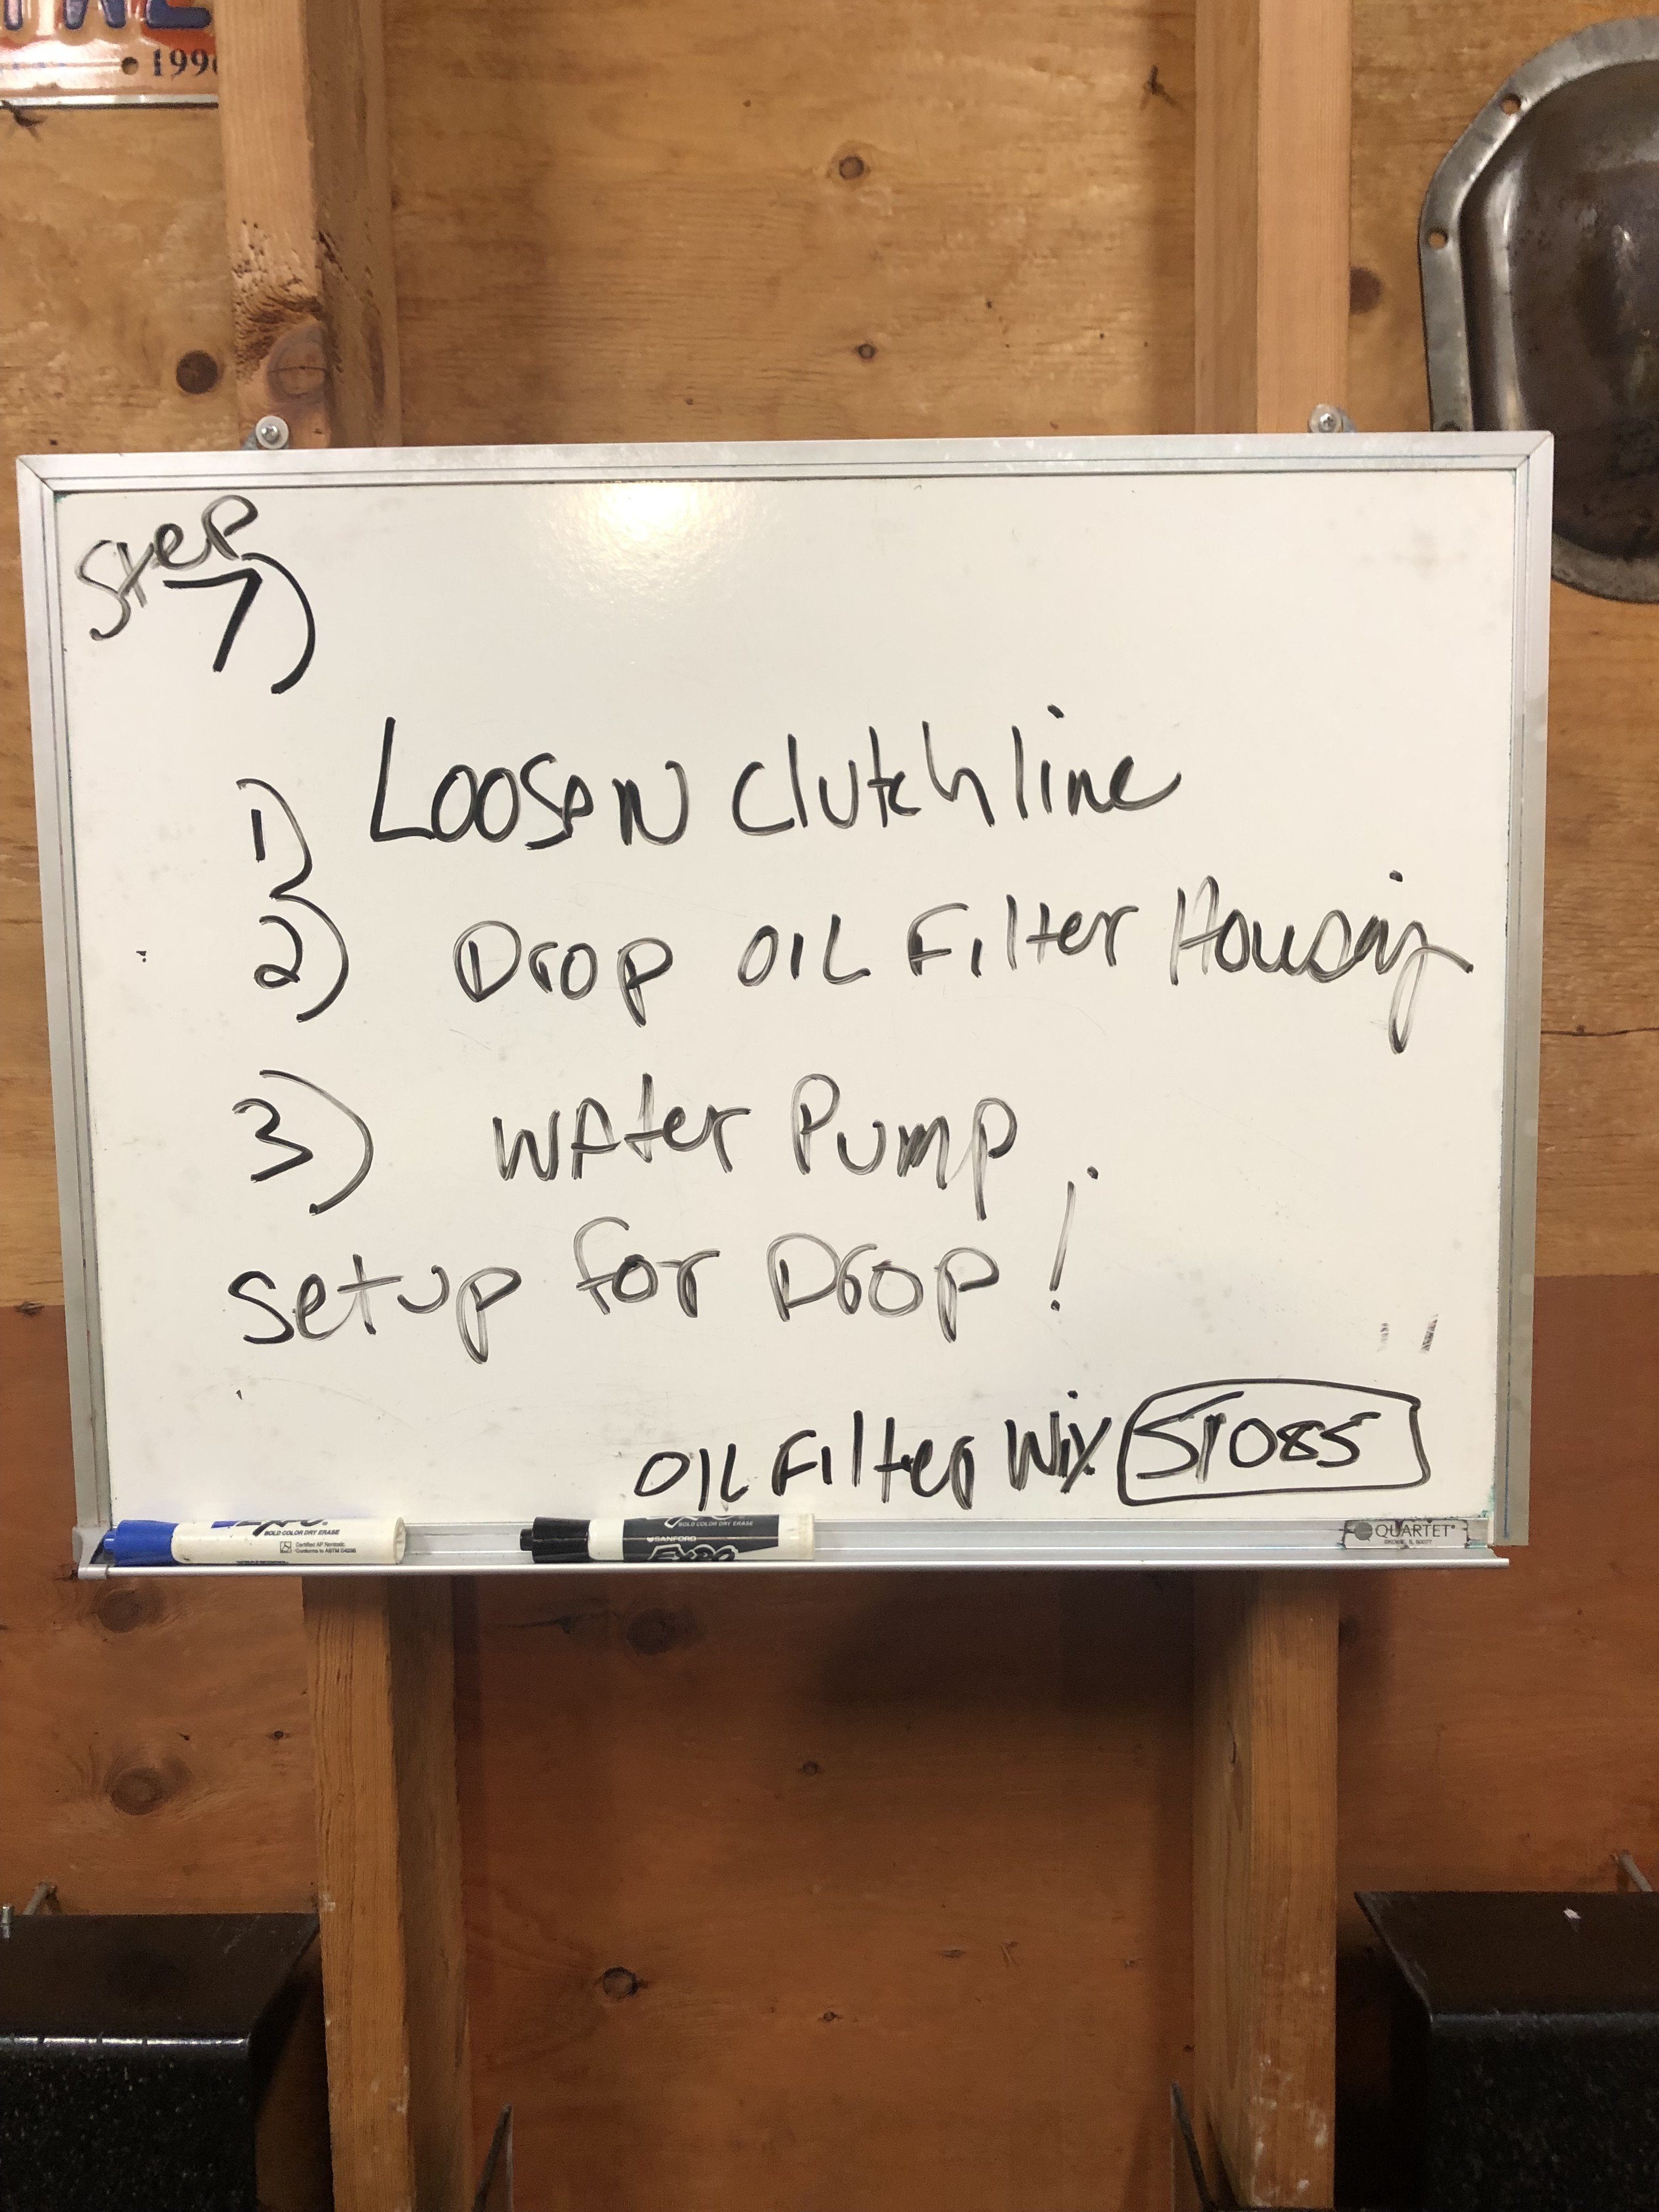 1990
Step
7)
1) Loosen Clutch line
2) Drop OIL Filter Housing
3) WAter Pump
setup for Drop!
OIL Filter Wix 51085
EXPO
BOLD COLOR DRY ERASE
Certified AP Nontoxic
Conforms to ASTM D4236
BOLD COLOR DRY ERASE
SANFORD
EXPO
QUARTET